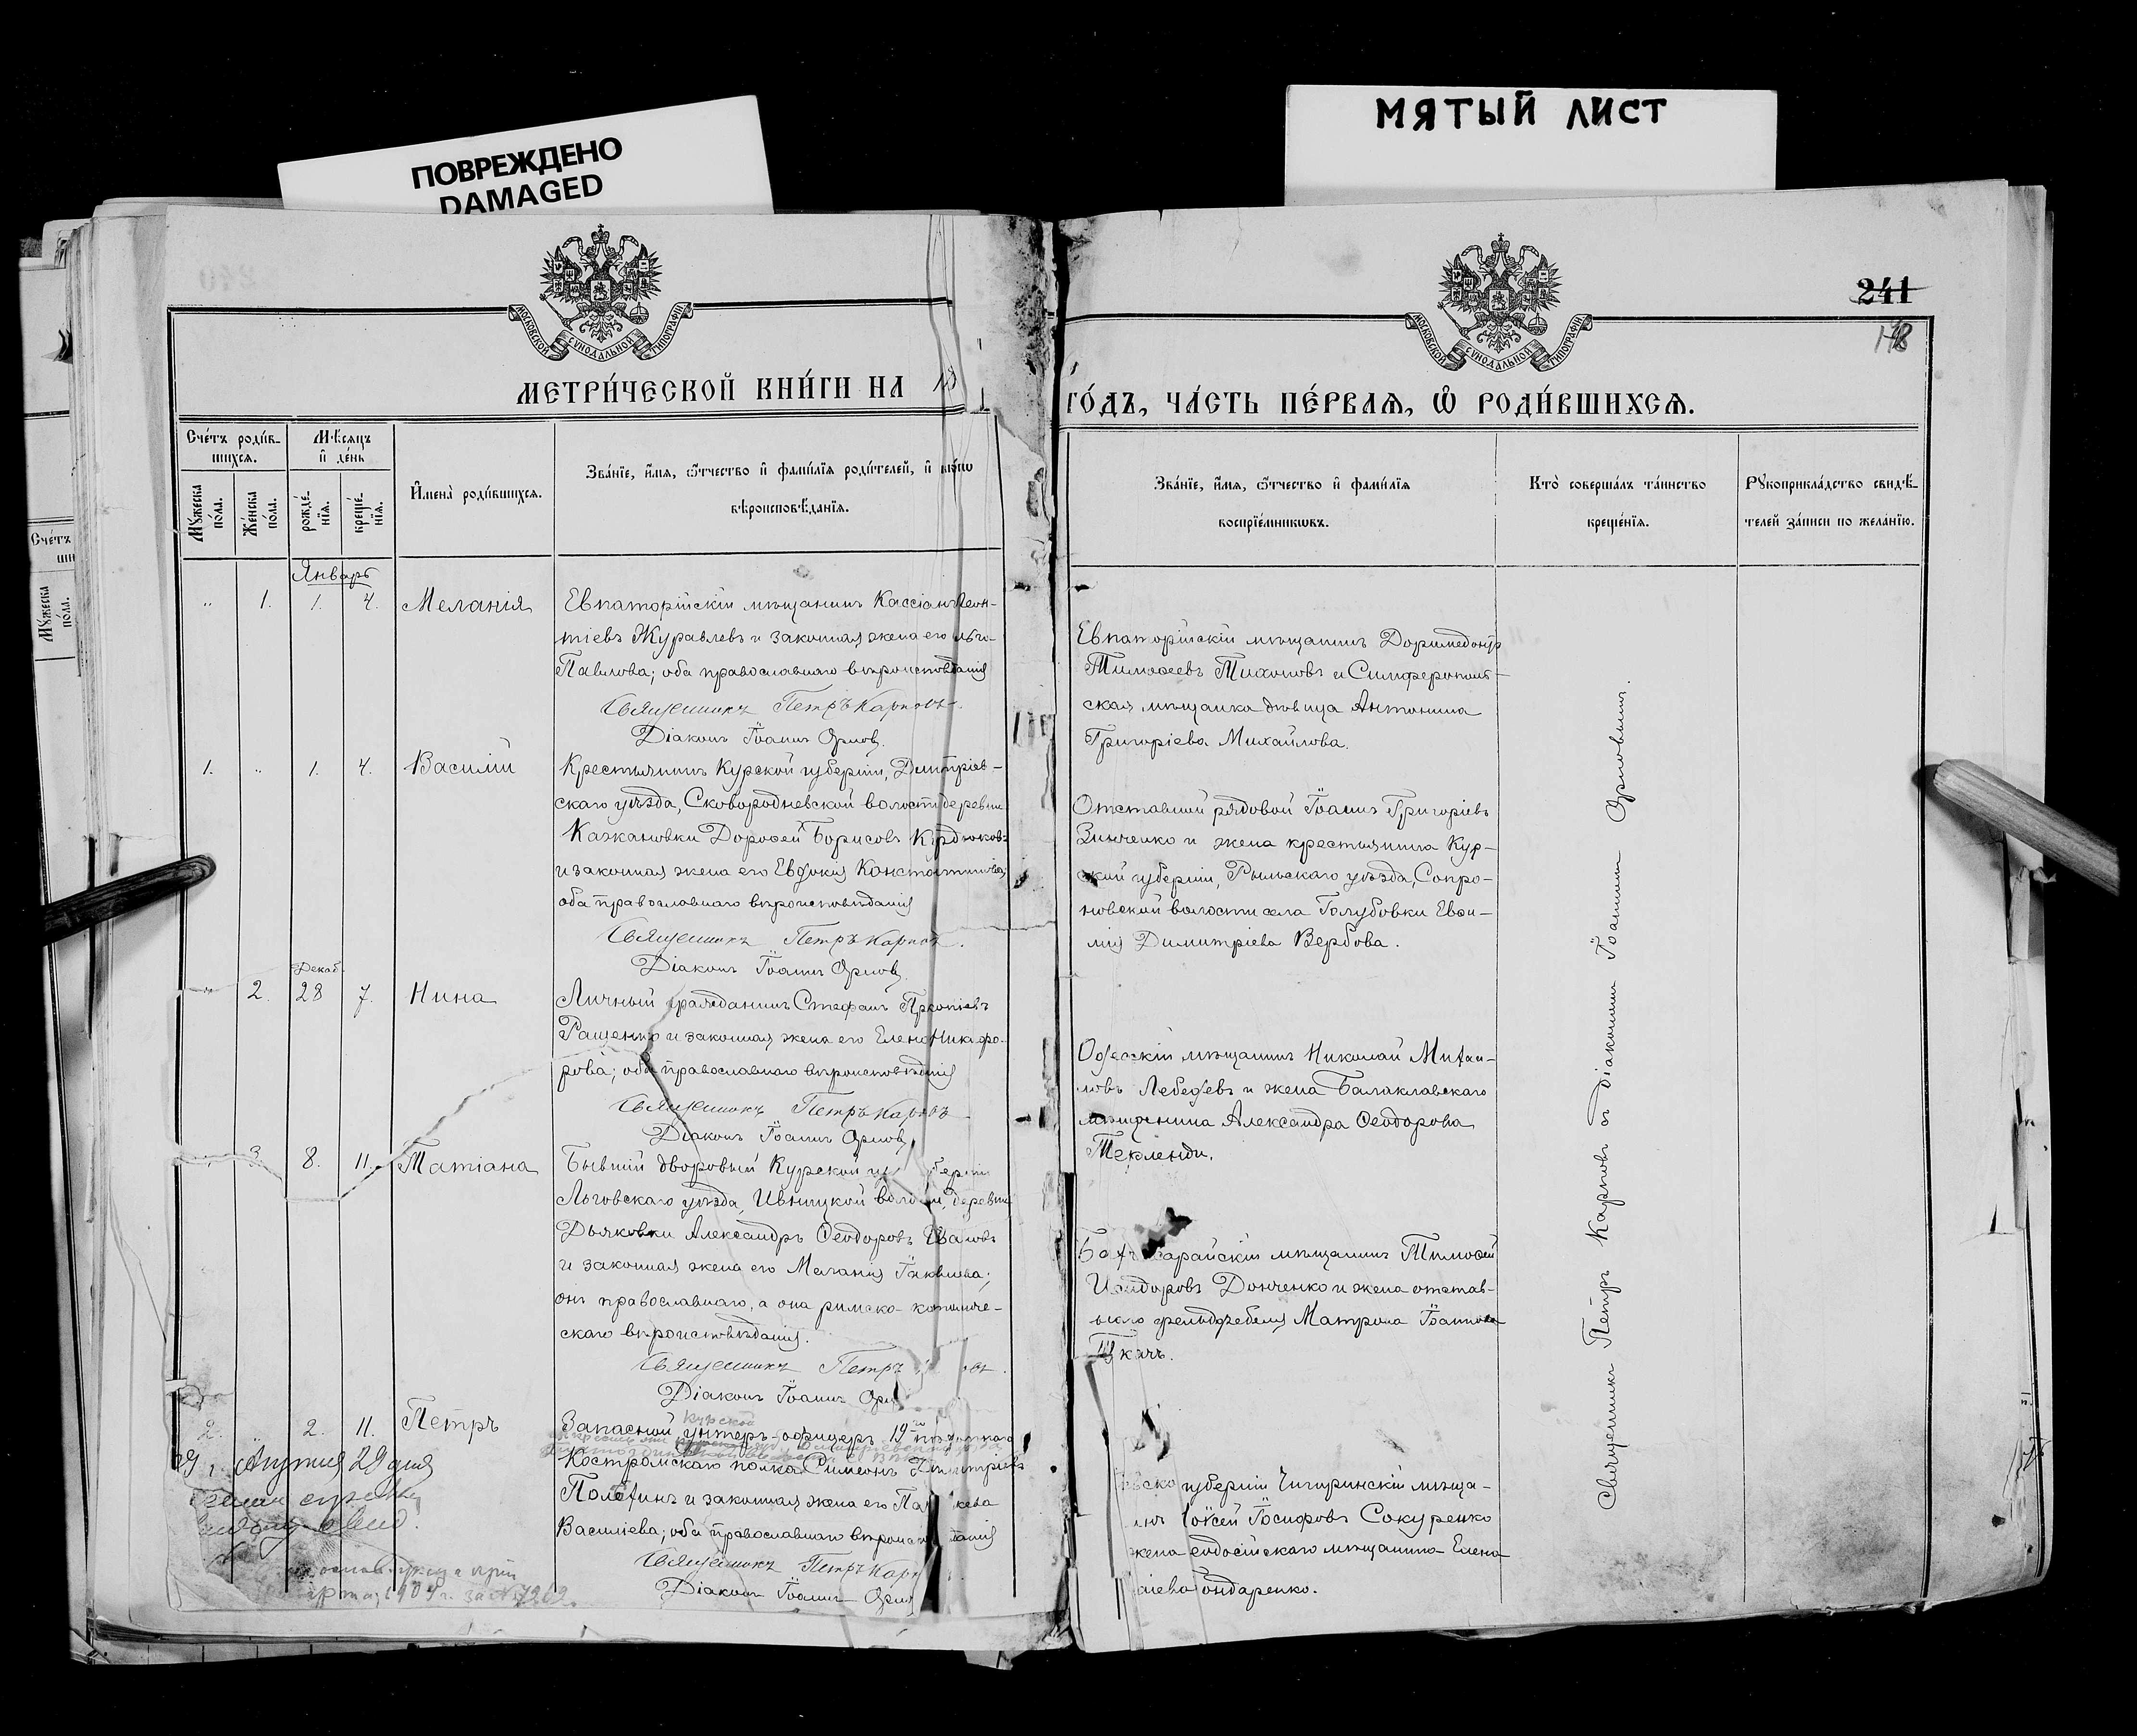 ПОВРЕЖДЕНО
DAMAGED
МЯТЫЙ ЛИСТ
241
МОСКОВСКОЙ СѴНОДАЛЬНОЙ ТИПОГРАФІИ
МОСКОВСКОЙ СѴНОДАЛЬНОЙ ТИПОГРАФІИ
МЕТРИ́ЧЕСКОЙ КНИ́ГИ НА
ГО́ДЪ, ЧА́СТЬ ПЕ́РВАѦ, Ѽ РОДИ́ВШИХСѦ.
Сче́тъ роди́в-
шихсѧ.
Мѣ́сѧцъ
и҆ де́нь
Мꙋ́жеска по́ла.
Же́нска по́ла.
рожде́нїѧ.
креще́нїѧ.
И҆мена̀ роди́вшихсѧ.
Зва́нїе, и҆́мѧ, ѻ҆́тчество и҆ фами́лїѧ роди́телей, и҆
вѣроисповѣ́данїѧ.
Зва́нїе, и҆́мѧ, ѻ҆́тчество и҆ фами́лїѧ
воспрїе́мникѡвъ.
Кто̀ соверша́лъ та́инство
креще́нїѧ.
Рꙋкоприкла́дство свидѣ́-
телей за́писи по жела́нїю.
Январь
" 1. 1. 4. Меланія
Евпаторійскій мѣщанинъ Кассіанъ Леон-
тіевъ Журавлевъ и законная жена его
Павлова; оба православнаго вѣроисповѣданія
Священникъ Петръ Карповъ.
Діаконъ Іоаннъ Орловъ.
Евпаторійскій мѣщанинъ Доримедонтъ
Тимоѳеевъ Тихоновъ и Симферополь-
ская мѣщанка дѣвица Антонина
Григоріева Михайлова.
1. " 1. 4. Василій
Крестьянинъ Курской губерніи, Димитріев-
скаго уѣзда, Сковородневской волости деревни
Кажановки Дороѳей Борисовъ Курдюковъ
и законная жена его Евдокія Константинова;
оба православнаго вѣроисповѣданія
Священникъ Петръ Карповъ.
Діаконъ Іоаннъ Орловъ.
Отставный рядовой Іоаннъ Григоріевъ
Зинченко и жена крестьянина Кур-
ской губерніи, Рыльскаго уѣзда, Сопро-
новской волости села Голубовки Евѳи-
мія Димитріева Вербова.
Декаб.
" 2. 28 7. Нина
Личный гражданинъ Стефанъ Прокопіевъ
Ращенко и законная жена его Елена Никифо-
рова; оба православнаго вѣроисповѣданія
Священникъ Петръ Карповъ
Діаконъ Іоаннъ Орловъ
Одесскій мѣщанинъ Николай Михаи-
ловъ Лебедевъ и жена Балаклавскаго
мѣщанина Александра Ѳеодорова
3. 8. 11. Татіана
Бывшій дворовый Курской губерніи
Льговскаго уѣзда, Ивницкой волости, деревни
Дьяковки Александръ Ѳеодоровъ Ивановъ
и законная жена его Меланія Іаковлева;
онъ православнаго, а она римско-католиче-
скаго вѣроисповѣданія.
Священникъ Петръ
Діаконъ Іоаннъ
Бахчисарайскій мѣщанинъ Тимоѳей
Исидоровъ Донченко и жена отстав-
ного фельдфебеля Матрона Іоаннова
Ткачъ.
2. 2. 11. Петръ
Запасной унтеръ-офицеръ 19го пѣхотнаго
Костромскаго полка Симеонъ Димитріевъ
Полетинъ и законная жена его Параскева
Василіева; оба православнаго вѣроисповѣданія
Священникъ Петръ
Діаконъ Іоаннъ
губерніи Чигиринскій мѣща-
Іосифовъ Сокуренко
жена мѣщанина Елена
Бондаренко.
Священникъ Петръ Карповъ съ діакономъ Іоанномъ Орловымъ.